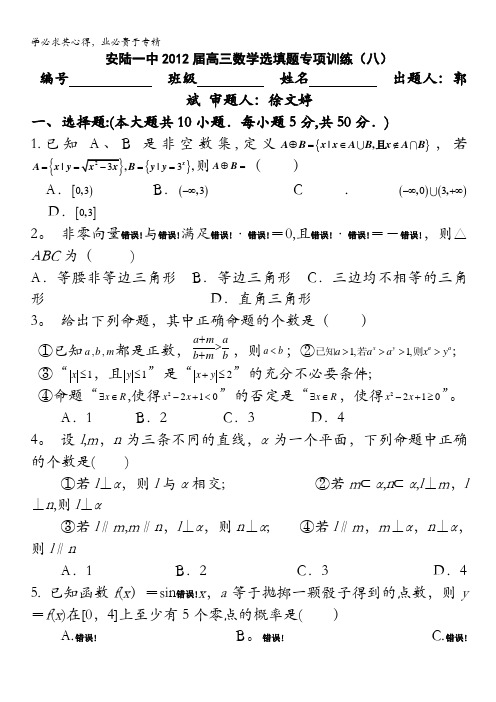 学必求其心得，业必贵于专精
安陆一中2012届高三数学选填题专项训练（八）
编号 班级 姓名 出题人：郭
斌 审题人：徐文婷
一、选择题:(本大题共10小题．每小题5分,共50分．)
1.已知 A、B 是非空数集,定义 A⊕B={x|x∈A∪B,且x∉A∩B}，若
A={x|y=√(x²-3x)},B={y|y=3ˣ},则A⊕B=（ ）
A．[0,3) B．(-∞,3) C ． (-∞,0)∪(3,+∞)
D．[0,3]
2。 非零向量错误!与错误!满足错误!·错误!＝0,且错误!·错误!＝－错误!，则△
ABC为（ ）
A．等腰非等边三角形 B．等边三角形 C．三边均不相等的三角
形 D．直角三角形
3。 给出下列命题，其中正确命题的个数是（ ）
①已知a,b,m都是正数，(a+m)/(b+m)>a/b，则a<b；②已知a>1,若aˣ>aʸ>1,则xᵃ>yᵃ；
③“|x|≤1，且|y|≤1”是“|x+y|≤2”的充分不必要条件；
④命题“∃x∈R,使得x²-2x+1<0”的否定是“∃x∈R，使得x²-2x+1≥0”。
A．1 B．2 C．3 D．4
4。 设l,m，n为三条不同的直线，α为一个平面，下列命题中正确
的个数是( )
①若l⊥α，则l与α相交; ②若m⊂α,n⊂α,l⊥m，l
⊥n,则l⊥α
③若l∥m,m∥n，l⊥α，则n⊥α; ④若l∥m，m⊥α，n⊥α，
则l∥n
A．1 B．2 C．3 D．4
5. 已知函数f(x)＝sin错误!x，a等于抛掷一颗骰子得到的点数，则y
＝f(x)在[0，4]上至少有5个零点的概率是( )
A.错误! B。错误! C.错误!